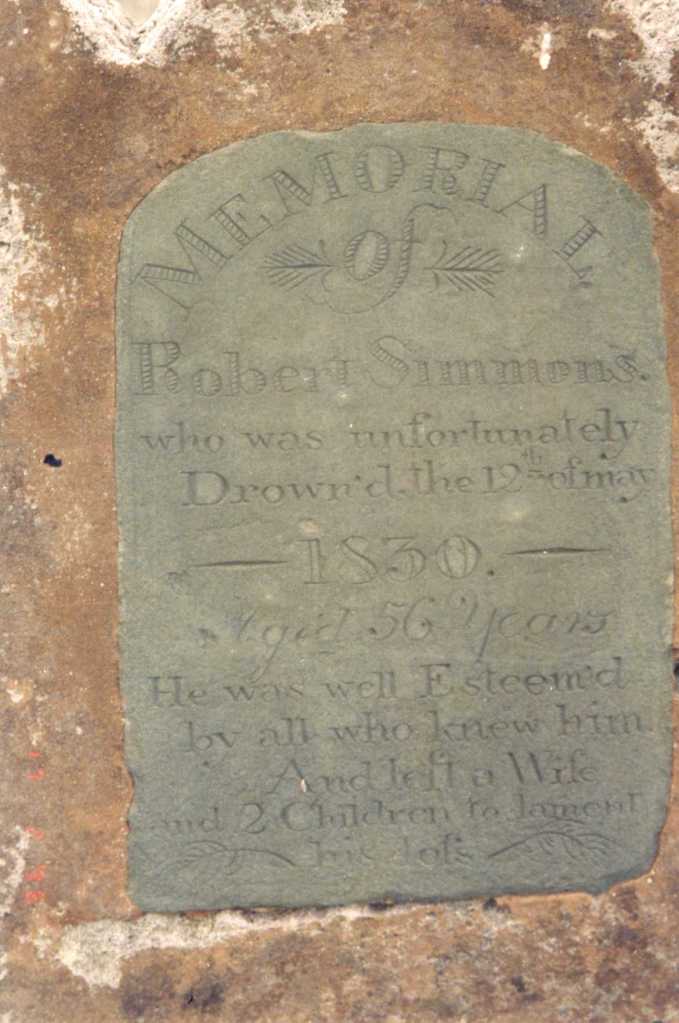 MEMORIAL
of
Robert Simmons.
who was unfortunately
Drown'd. the 12th of may
— 1830. —
Aged 56 Years
He was well Esteem'd
by all who knew him
And left a Wife
and 2 Children to lament
his loſs